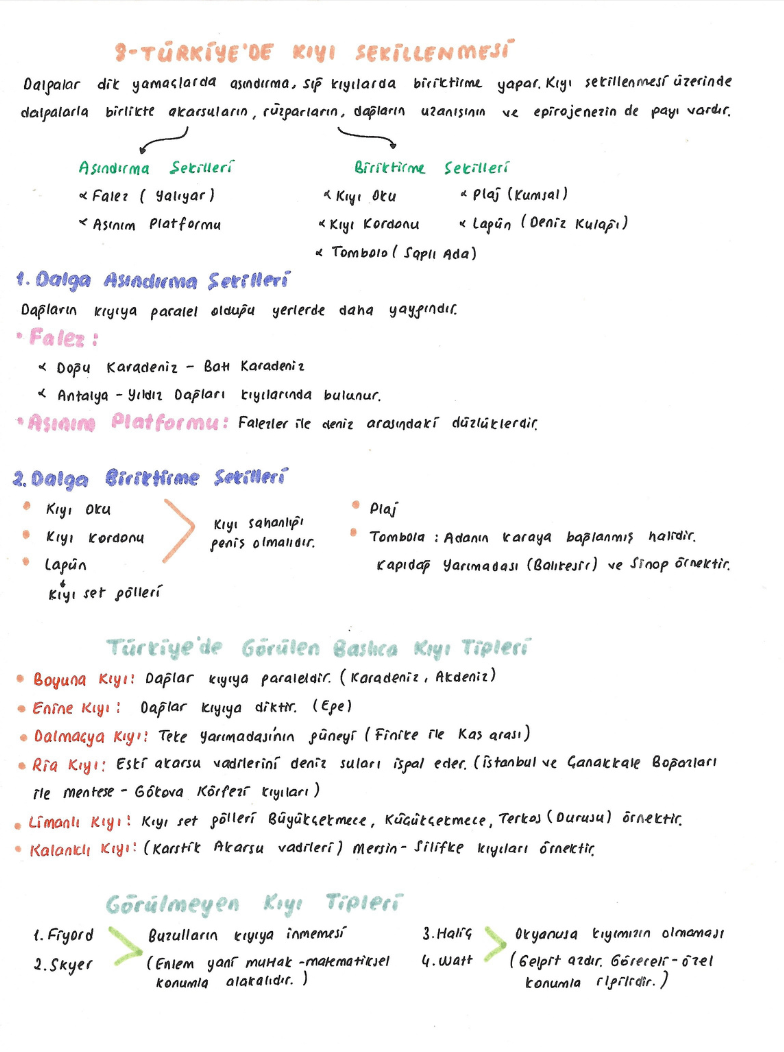 8-TÜRKİYE'DE KIYI ŞEKİLLENMESİ
Dalgalar dik yamaçlarda aşındırma, sığ kıyılarda biriktirme yapar. Kıyı şekillenmesi üzerinde
dalgalarla birlikte akarsuların, rüzgarların, dağların uzanışının ve epirojenezin de payı vardır.
Aşındırma Şekilleri
Biriktirme Şekilleri
Falez ( Yalıyar)
Aşınım Platformu
Kıyı Oku
Plaj (Kumsal)
Kıyı Kordonu
Lagün (Deniz Kulağı)
Tombolo ( Saplı Ada)
1. Dalga Aşındırma Şekilleri
Dağların kıyıya paralel olduğu yerlerde daha yaygındır.
• Falez :
Doğu Karadeniz - Batı Karadeniz
Antalya - Yıldız Dağları kıyılarında bulunur.
• Aşınım Platformu: Falezler ile deniz arasındaki düzlüklerdir.
2. Dalga Biriktirme Şekilleri
• Kıyı Oku
• Kıyı Kordonu
• Lagün
Kıyı set gölleri
Kıyı sahanlığı
geniş olmalıdır.
• Plaj
• Tombola : Adanın karaya bağlanmış halidir.
Kapıdağ Yarımadası (Balıkesir) ve Sinop örnektir.
Türkiye'de Görülen Başlıca Kıyı Tipleri
• Boyuna Kıyı: Dağlar kıyıya paraleldir. ( Karadeniz, Akdeniz)
• Enine Kıyı : Dağlar kıyıya diktir. (Ege)
• Dalmaçya Kıyı: Teke Yarımadası'nın güneyi ( Finike ile Kaş arası)
• Ria Kıyı: Eski akarsu vadilerini deniz suları işgal eder. (İstanbul ve Çanakkale Boğazları
ile Menteşe - Gökova Körfezi kıyıları)
• Limanlı Kıyı: Kıyı set gölleri Büyükçekmece, Küçükçekmece, Terkos (Durusu) örnektir.
• Kalanklı Kıyı: (Karstik Akarsu vadileri) Mersin- Silifke kıyıları örnektir.
Görülmeyen Kıyı Tipleri
1. Fiyord
2. Skyer
Buzulların kıyıya inmemesi
(Enlem yani mutlak -matematiksel
konumla alakalıdır. )
3. Haliç
4. Watt
Okyanusa kıyımızın olmaması
( Gelgit azdır. Göreceli - özel
konumla ilgilidir. )